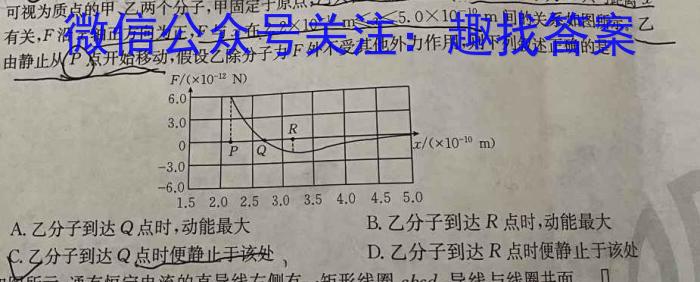 可视为质点的甲、乙两个分子,甲固定于原点
有关,F沿 5.0×10⁻¹⁰ m 间的关系如图所示 乙
微信公众号关注：趣找答案
由静止从P点开始移动,假设乙除分子力F外不受其他外力作用,则下列叙述正确的是
F/(×10⁻¹² N)
6.0
3.0
R
0 P Q x/(×10⁻¹⁰ m)
-3.0
-6.0
1.5 2.0 2.5 3.0 3.5 4.0 4.5 5.0
A. 乙分子到达Q点时,动能最大 B. 乙分子到达R点时,动能最大
C. 乙分子到达Q点时便静止于该处 D. 乙分子到达R点时便静止于该处
通有恒定电流的直导线右侧有一矩形线圈abcd,导线与线圈共面